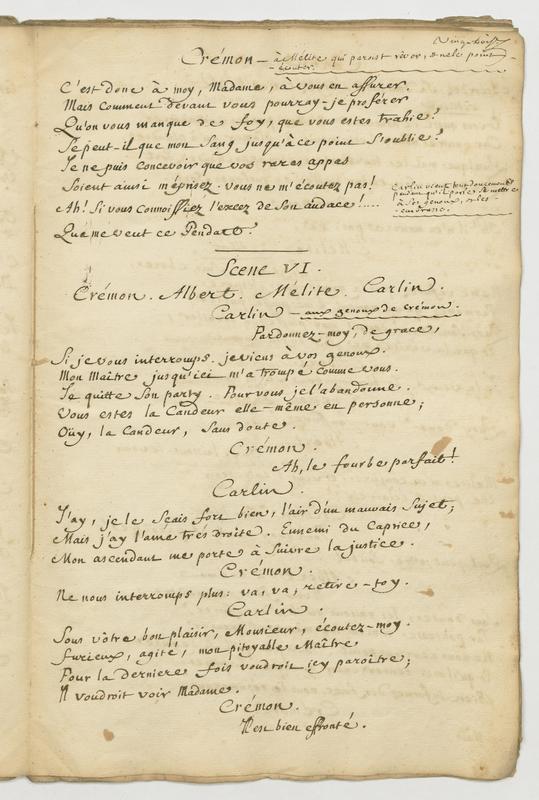 Vingt-trois
Crémon — à Mélite qui paroit rêver, & ne le point
écouter.
C'est donc à moy, Madame, à vous en assurer.
Mais comment devant vous pourray-je proférer
Qu'on vous manque de foy, que vous estes trahie?
Se peut-il que mon Sang jusqu'à ce point s'oublie?
Je ne puis concevoir que vos rares appas
Soient ainsi méprisez. vous ne m'écoutez pas!
Ah! Si vous connoissiez l'excez de Son audace!....
Carlin vient tout doucement
pendant qu'il parle se mettre
à Ses genoux, & les
embrasse.
Que me veut ce Pendart?
Scene VI.
Crémon. Albert. Mélite. Carlin.
Carlin — aux genoux de Crémon.
Pardonnez-moy, de grace,
Si je vous interromps. je viens à vos genoux.
Mon Maître jusqu'ici m'a trompé comme vous.
Je quitte Son party. Pour vous je l'abandonne.
Vous estes la Candeur elle-même en personne;
Oüy, la Candeur, Sans doute.
Crémon.
Ah, le fourbe parfait!
Carlin.
J'ay, je le Sçais fort bien, l'air d'un mauvais Sujet;
Mais j'ay l'ame très droite. Ennemi du Caprice,
Mon ascendant me porte à Suivre la justice.
Crémon.
Ne nous interromps plus: va, va, retire-toy.
Carlin.
Sous vôtre bon plaisir, Monsieur, écoutez-moy.
Furieux, agité, mon pitoyable Maître
Pour la derniere fois voudroit icy paroître;
Il voudroit voir Madame.
Crémon.
Il est bien effronté.